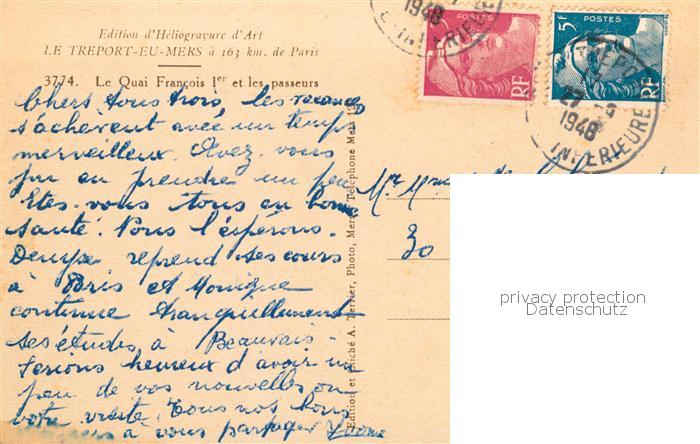 Edition d'Héliogravure d'Art
LE TREPORT-EU-MERS à 163 km. de Paris
3774. Le Quai François 1er et les passeurs
Chers tous trois, les vacances
s'achèvent avec un temps
merveilleux. Avez-vous
pu en prendre un peu
Etes-vous tous en bonne
santé. Nous l'espérons.
Denyse reprend ses cours
à Paris et Monique
continue tranquillement
ses études à Beauvais.
Serions heureux d'avoir un
peu de vos nouvelles ou
votre visite. Tous nos bons
à vous partager Yvonne
Edition et Cliché A. Photo, Mers Téléphone Mers
1948
INTERIEURE
POSTES
RF
5F
POSTES
RF
27
1948
INTERIEURE
Mr Mme
30
privacy protection
Datenschutz